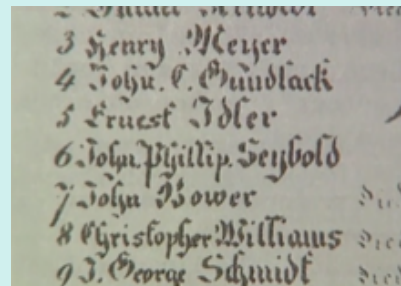 3 Henry Meyer
4 John. C. Gundlach
5 Ernest Idler
6 John. Phillip. Seybold
7 John Bower Died
8 Christopher Williams Died
9 J. George Schmidt Died